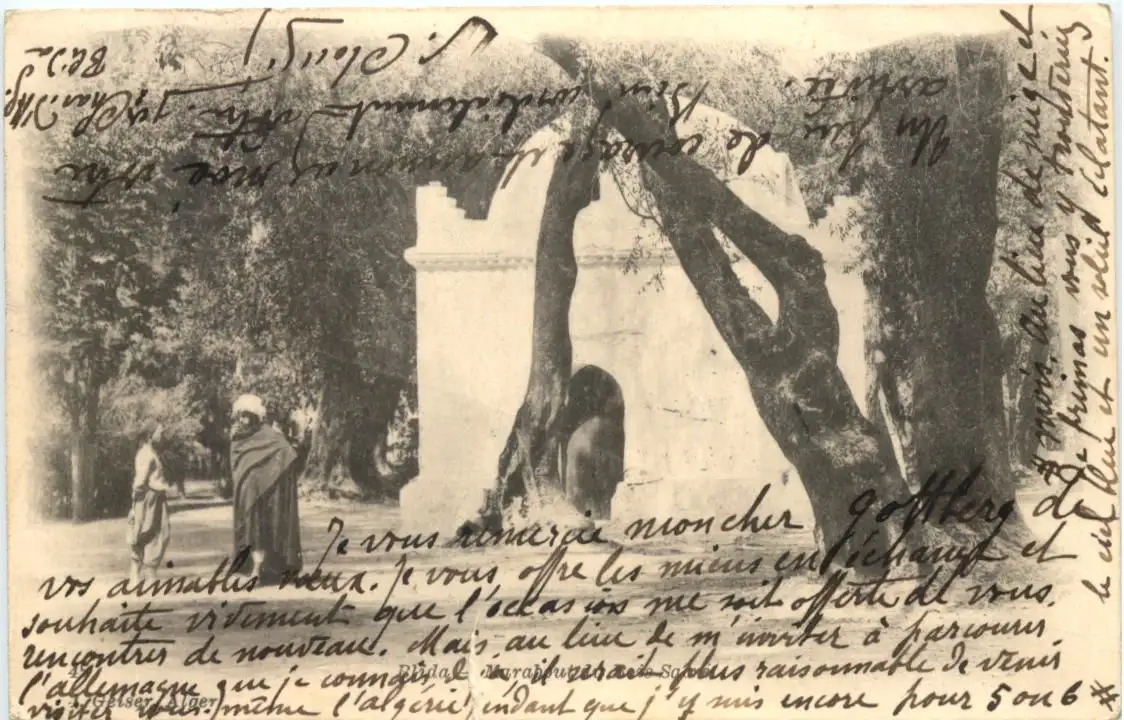 Je vous remercie mon cher Gottberg de
vos aimables vœux. Je vous offre les miens en échange et
souhaite vivement que l'occasion me soit offerte de vous
rencontrer de nouveau. Mais, au lieu de m'inviter à parcourir
l'allemagne que je connais, il serait plus raisonnable de venir
visiter vous-même l'algérie, pendant que j'y suis encore pour 5 ou 6 #
# mois. Au lieu de neige et
de frimas vous y trouveriez
le ciel bleu et un soleil éclatant.
Un peu de courage et annoncez moi votre
arrivée. Bien cordialement votre
Blida
Blidah - Marabout du Bois-Sacré
Geiser, Alger